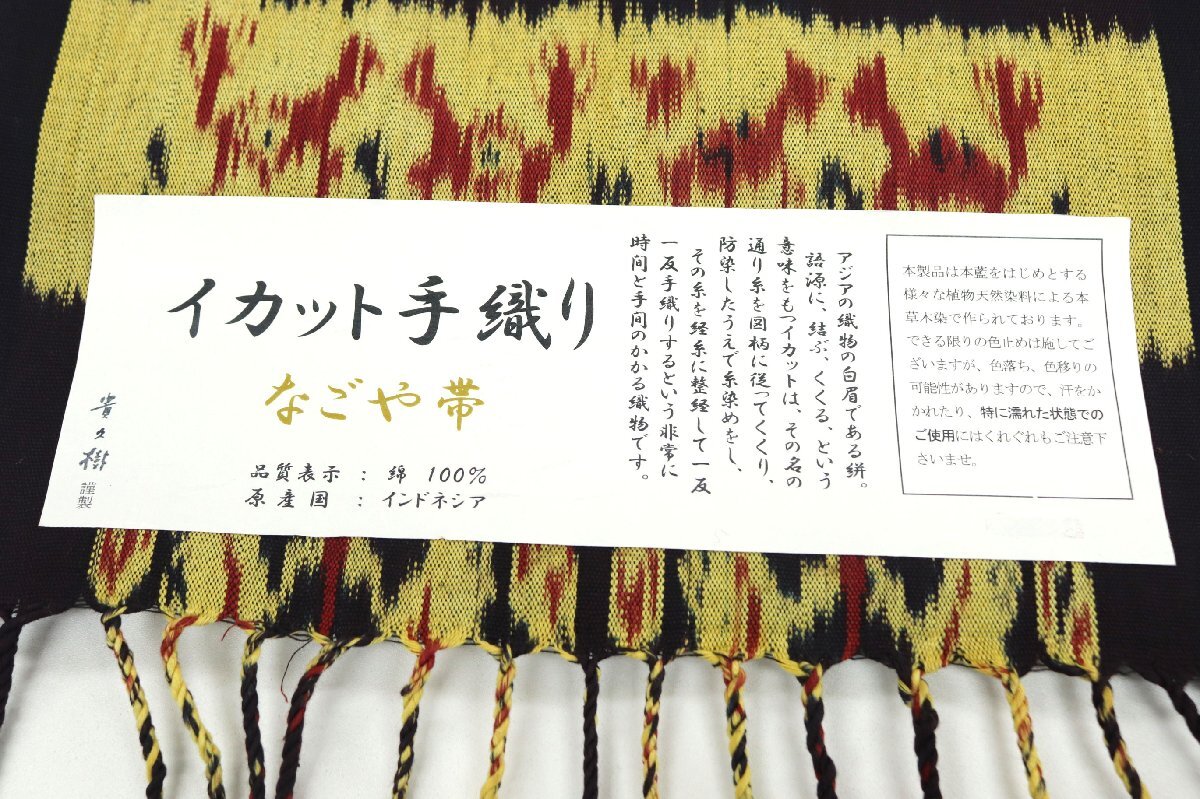 イカット手織り
なごや帯
品質表示 : 綿 100%
原産国 : インドネシア
貴久樹 謹製
アジアの織物の白眉である絣。
語源に、結ぶ、くくる、という
意味をもつイカットは、その名の
通り糸を図柄に従ってくくり、
防染したうえで糸染めをし、
その糸を経糸に整経して一反
一反手織りするという非常に
時間と手间のかかる織物です。
本製品は本藍をはじめとする
様々な植物天然染料による本
草木染で作られております。
できる限りの色止めは施してご
ざいますが、色落ち、色移りの
可能性がありますので、汗をか
かれたり、特に濡れた状態での
ご使用にはくれぐれもご注意下
さいませ。